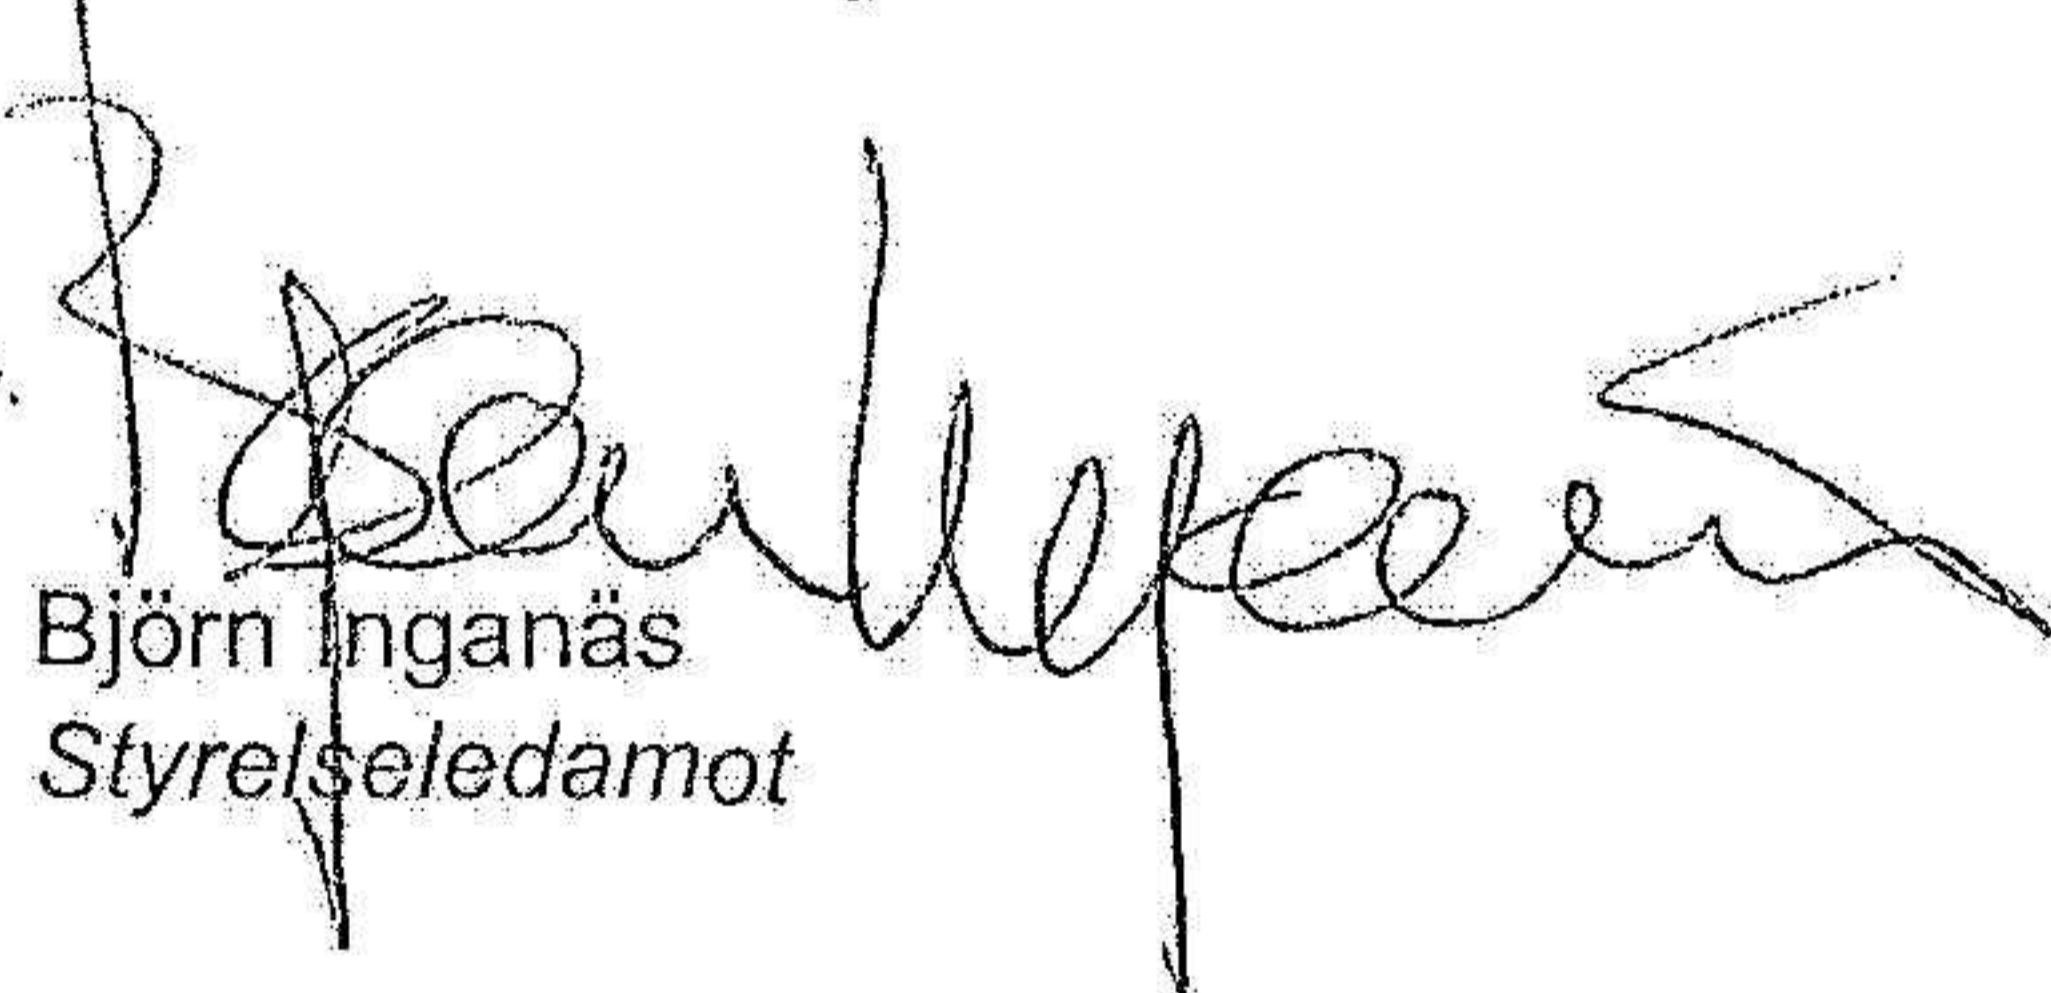 Björn Inganäs
Styrelseledamot